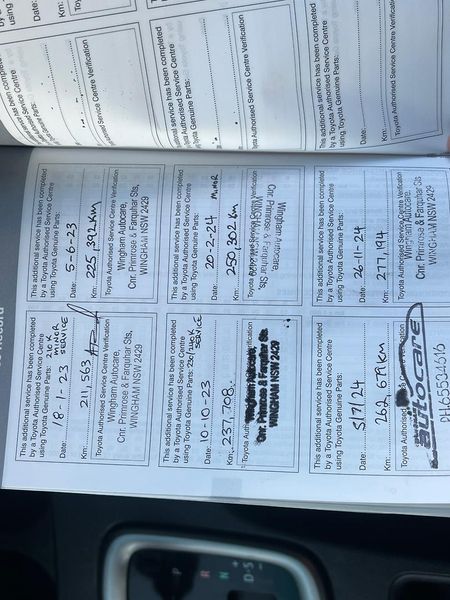 This additional service has been completed
by a Toyota Authorised Service Centre
using Toyota Genuine Parts: 210K
MINOR
SERVICE
Date: 10-1-23
Km: 211,563
Toyota Authorised Service Centre Verification
Wingham Autocare,
Cnr. Primrose & Farquhar Sts,
WINGHAM NSW 2429
This additional service has been completed
by a Toyota Authorised Service Centre
using Toyota Genuine Parts:
Date: 5-6-23
Km: 225,392Km
Toyota Authorised Service Centre Verification
Wingham Autocare,
Cnr. Primrose & Farquhar Sts,
WINGHAM NSW 2429
This additional service has been completed
by a Toyota Authorised Service Centre
using Toyota Genuine Parts: 230/240K
SERVICE
Date: 10-10-23
Km: 237,708
Toyota
Wingham Autocare
Cnr. Primrose & Farquhar Sts.
WINGHAM NSW 2429
This additional service has been completed
by a Toyota Authorised Service Centre
using Toyota Genuine Parts:
Date: 20-2-24 MINOR
Km: 250,302 Km
Toyota Service Centre Verification
Wingham Autocare,
Cnr. Primrose & Farquhar Sts,
WINGHAM NSW 2429
This additional service has been completed
by a Toyota Authorised Service Centre
using Toyota Genuine Parts:
Date: 5/7/24
Km: 262,679Km
Toyota Authorised Verification
autocare
PH:65534516
This additional service has been completed
by a Toyota Authorised Service Centre
using Toyota Genuine Parts:
Date: 26-11-24
Km: 277,194
Toyota Authorised Service Centre Verification
Wingham Autocare,
Cnr. Primrose & Farquhar Sts,
WINGHAM NSW 2429
using
Date:
Km:
Toyota
been completed
Service Centre
Parts:
Service Centre Verification
This additional service has been completed
by a Toyota Authorised Service Centre
using Toyota Genuine Parts:
Date:
Km:
Toyota Authorised Service Centre Verification
This additional service has been completed
by a Toyota Authorised Service Centre
using Toyota Genuine Parts:
Date:
Km:
Toyota Authorised Service Centre Verification
P
R
N
D-S
+